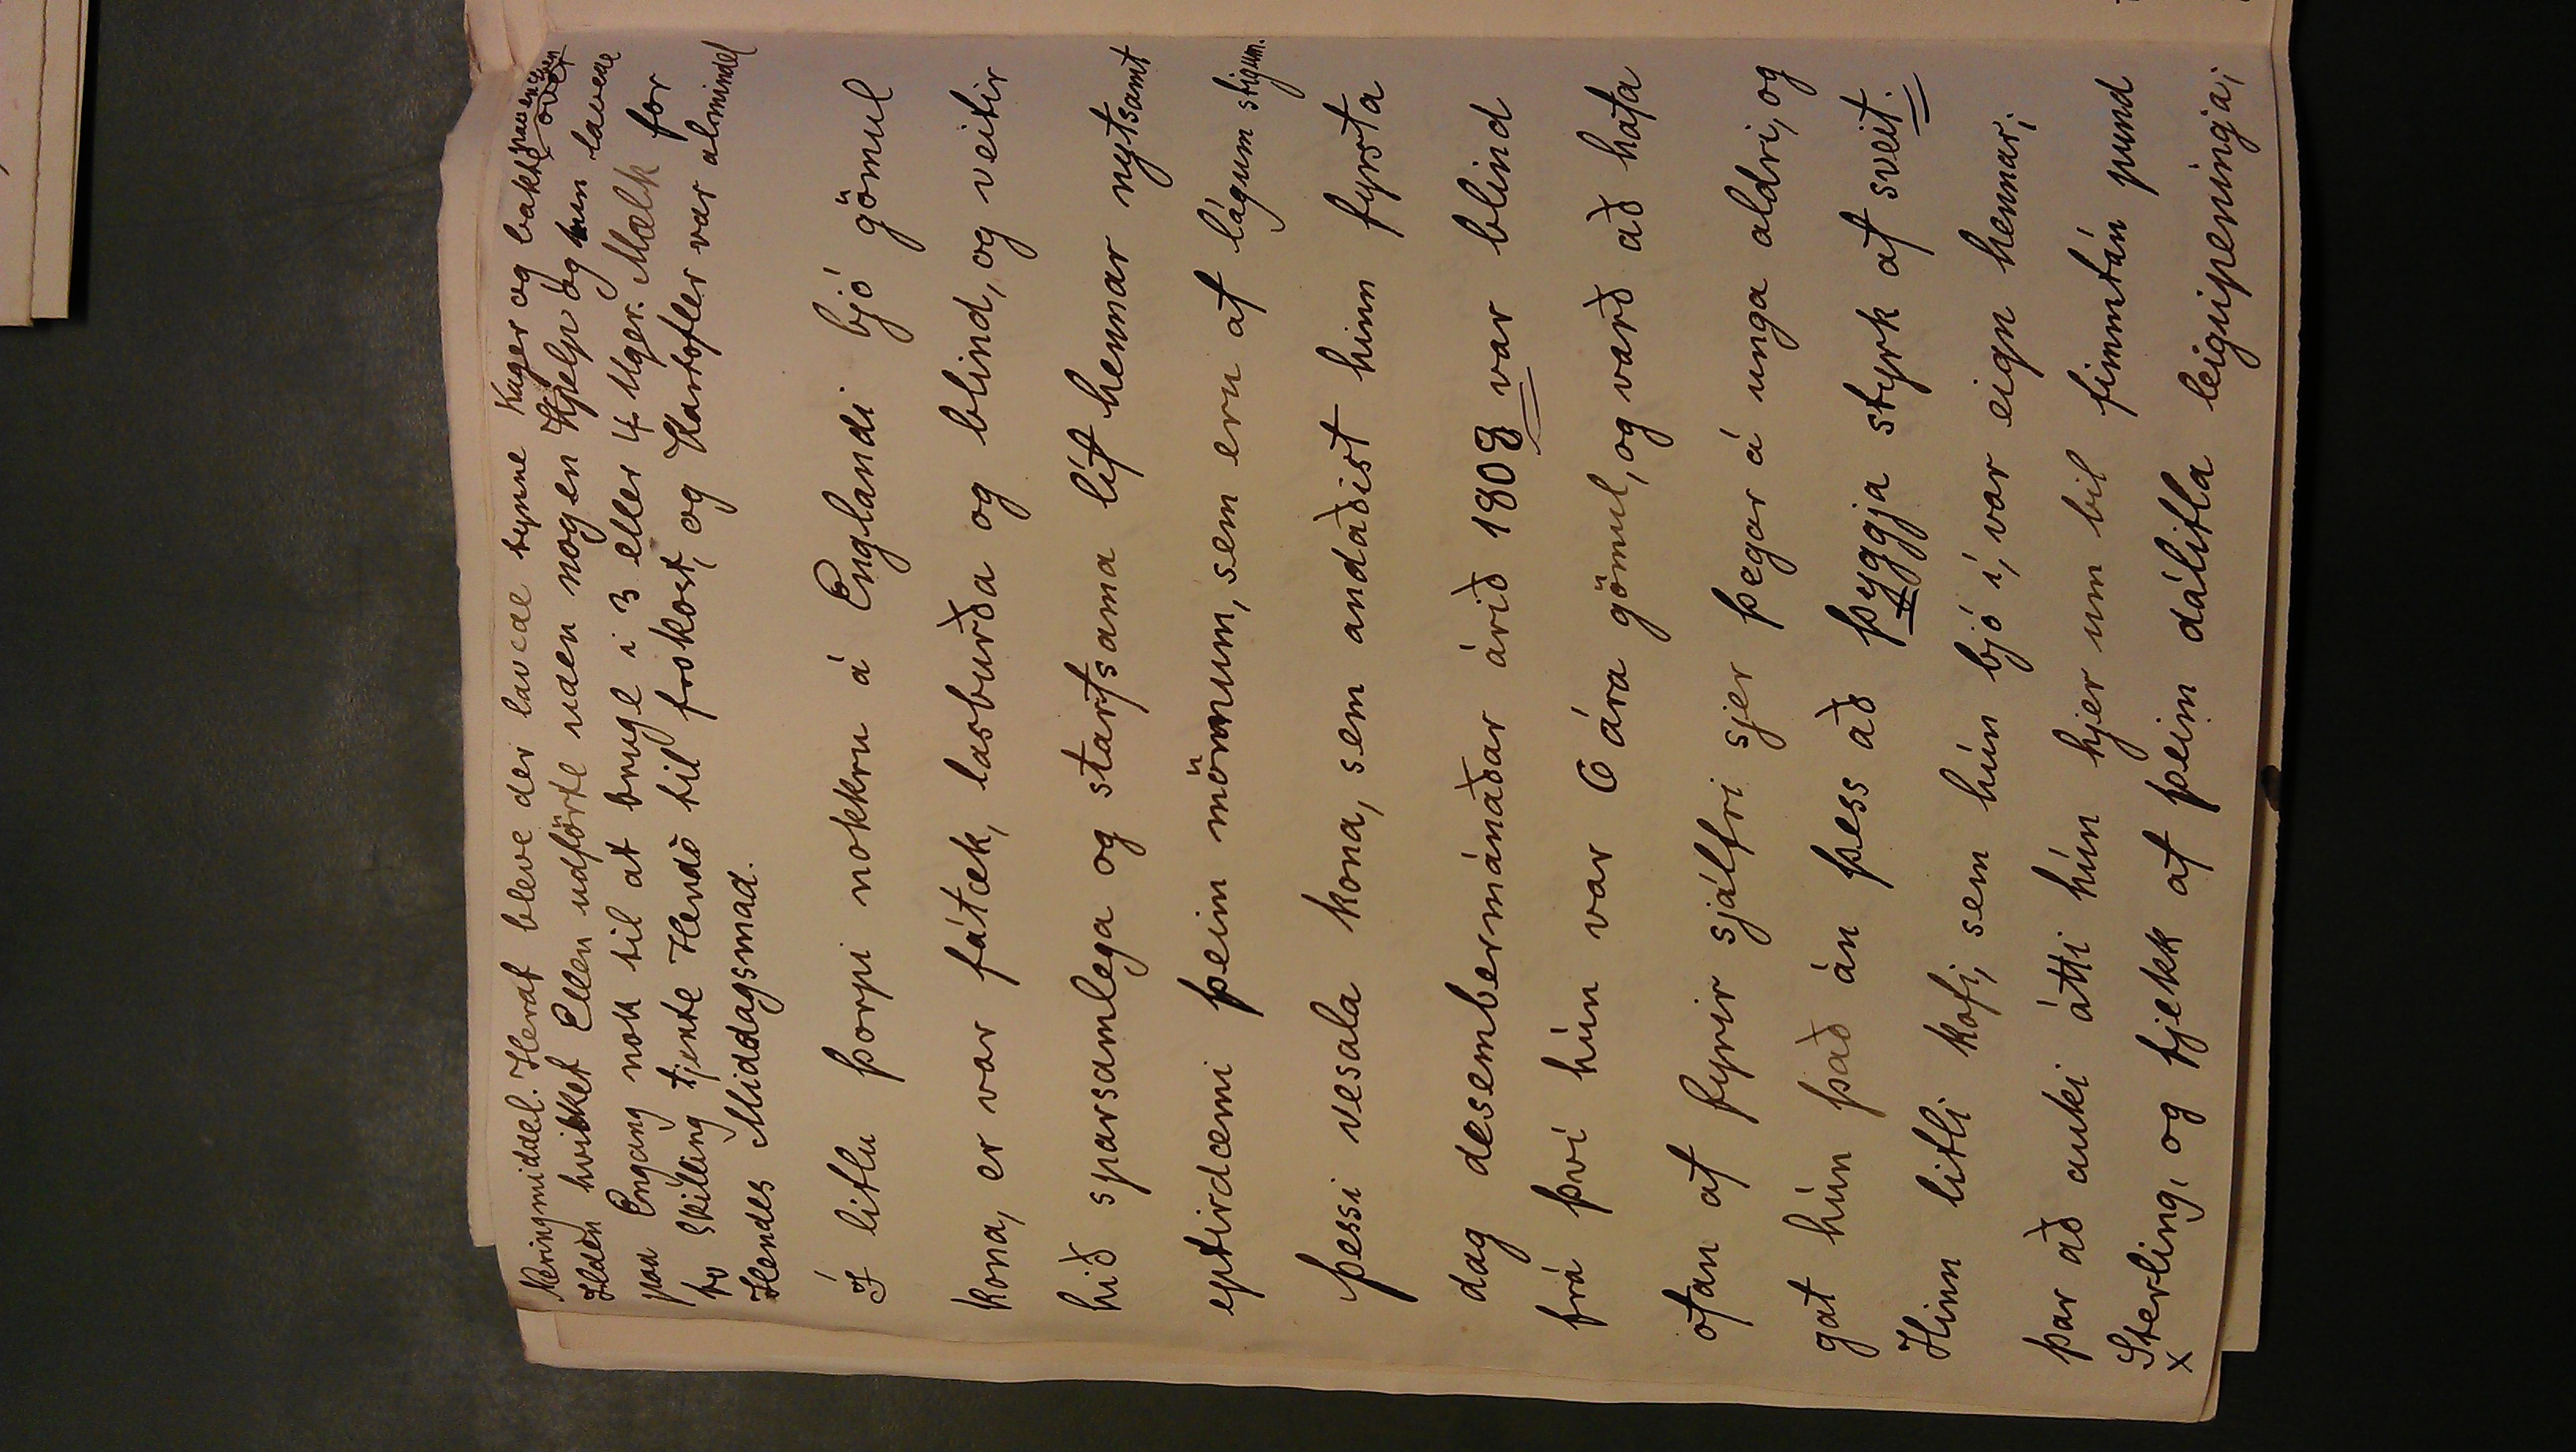 Neringmiddel. Heraf bleve der lavede tynne Kager og bakkt paa en
Ilden hvilket Ellen udförte uden nogen Hjelp og hun lavede
paa Engang nok til at bruge i 3 eller 4 Uger. Mælk for
to Skilling tjente Hende til frokost, og Kartofler var almindel
Hendes Middagsmad.
Í litlu þorpi nokkru á Englandi bjó gömul
kona, er var fátæk, lasburða og blind, og veitir
hið sparsamlega og starfsama líf hennar nytsamt
eptirdæmi þeim mönnum, sem eru af lágum stigum.
Þessi vesala kona, sem andaðist hinn fyrsta
dag desembermánaðar árið 1809 var blind
frá því hún var 6 ára gömul, og varð að hafa
ofan af fyrir sjálfri sjer þegar á unga aldri, og
gat hún það án þess að þyggja styrk af sveit.
Hinn litli kofi, sem hún bjó í, var eign hennar;
þar að auki átti hún hjer um bil fimmtán pund
Sterling, og fjekk af þeim dálitla leigupeninga;
x